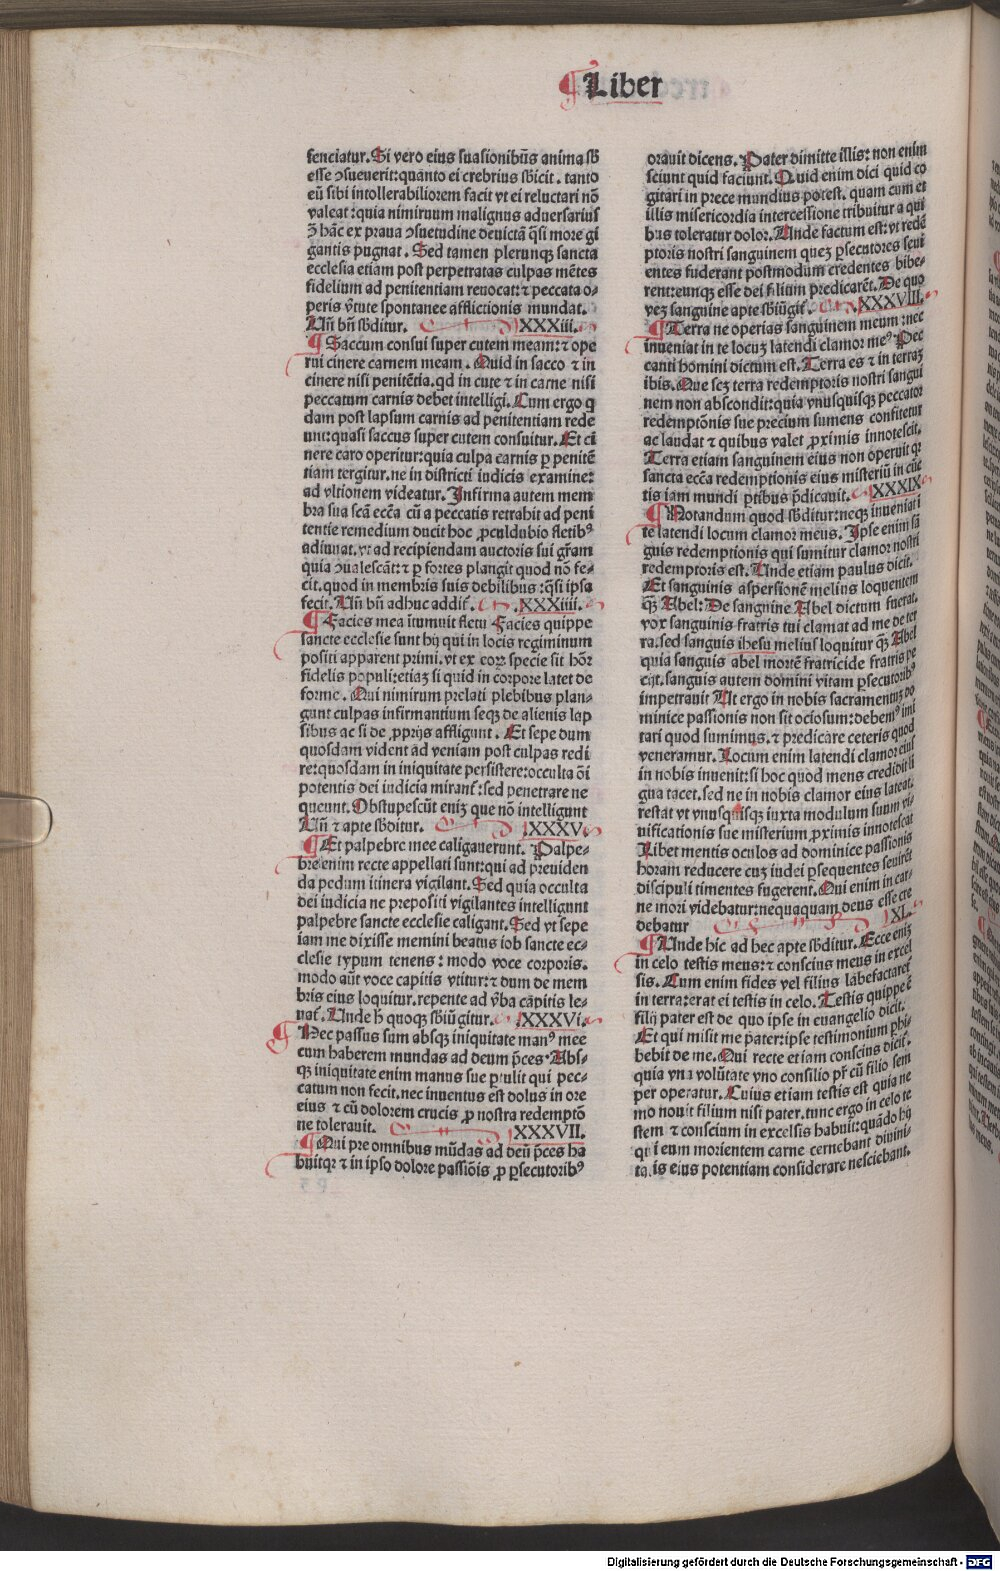 Liber
senciatur. Si vero eius suasionibus anima sb̄
esse ↄsueuerit: quanto ei crebrius sb̄icit. tanto
eū sibi intollerabiliorem facit vt ei reluctari nō
valeat: quia nimirum malignus aduersarius
ꝫ hāc ex praua ↄsuetudine deuictā q̄si more gi
gantis pugnat. Sed tamen plerunqꝫ sancta
ecclesia etiam post perpetratas culpas mētes
fidelium ad penitentiam reuocat: ⁊ peccata o⸗
peris v̄tute spontanee afflictionis mundat.
Uñ bñ sb̄ditur. XXXiii.
Saccum consui super cutem meam: ⁊ ope
rui cinere carnem meam. Quid in sacco ⁊ in
cinere nisi penitētia. qd in cute ⁊ in carne nisi
peccatum carnis debet intelligi. Cum ergo q
dam post lapsum carnis ad penitentiam rede
unt: quasi saccus super cutem consuitur. Et ci
nere caro operitur: quia culpa carnis ꝑ penitē
tiam tergitur. ne in districti iudicis examine:
ad vltionem videatur. Infirma autem mem
bra sua scā ecc̄a cū a peccatis retrahit ad peni
tentie remedium ducit hoc ꝓculdubio fletibꝰ
adiuuat. vt ad recipiendam auctoris sui gr̄am
quia ↄualescāt: ⁊ ꝑ fortes plangit quod nō fe⸗
cit. quod in membris suis debilibus: q̄si ipsa
fecit. Uñ bñ adhuc addit̄. XXXiiii.
Facies mea ītumuit fletu Facies quippe
sancte ecclesie sunt hij qui in locis regiminum
positi apparent primi. vt ex eoꝝ specie sit hōr
fidelis populi: etiaꝫ si quid in corpore latet de
forme. Qui nimirum prelati plebibus plan⸗
gunt culpas infirmantium seqꝫ de alienis lap
sibus ac si de ꝓprijs affligunt. Et sepe dum
quosdam vident ad veniam post culpas redi
re: quosdam in iniquitate persistere: occulta oī
potentis dei iudicia mirant̄: sed penetrare ne
queunt. Obstupescūt eniꝫ que nō intelligunt
Uñ ⁊ apte sb̄ditur. XXXV.
Et palpebre mee caligauerunt. Palpe⸗
bre enim recte appellati sunt: qui ad preuiden
da pedum itinera vigilant. Sed quia occulta
dei iudicia ne prepositi vigilantes intelligunt
palpebre sancte ecclesie caligant. Sed vt sepe
iam me dixisse memini beatus iob sancte ec⸗
clesie typum tenens: modo voce corporis.
modo aūt voce capitis vtitur: ⁊ dum de mem
bris eius loquitur. repente ad v̄ba capitis le⸗
uat̄. Unde h̄ quoqꝫ sb̄iū gitur. XXXVi.
Nec passus sum absqꝫ iniquitate manꝰ mee
cum haberem mundas ad deum p̄ces. Abs⸗
qꝫ iniquitate enim manus sue ꝑtulit qui pec⸗
catum non fecit. nec inuentus est dolus in ore
eius ⁊ cū dolorem crucis ꝓ nostra redemptō
ne tolerauit. XXXVII.
Qui pre omnibus mūdas ad deū p̄ces ha
buitqꝛ ⁊ in ipso dolore passiōis ꝓ ꝑsecutoribꝰ
orauit dicens. Pater dimitte illis: non enim
sciunt quid faciunt. Quid enim dici quid co
gitari in prece mundius potest. quam cum et
illis misericordia intercessione tribuitur a qui
bus toleratur dolor. Unde factum est: vt redē
ptoris nostri sanguinem queꝫ ꝑsecutores seui
entes fuderant postmodum credentes bibe⸗
rent: eunqꝫ esse dei filium predicarēt. De quo
veꝫ sanguine apte sb̄iūgit̄. XXXVIII.
Terra ne operias sanguinem meum: nec
inueniat in te locuꝫ latendi clamor meꝰ. Pec
canti homini dictum est. Terra es ⁊ in terraꝫ
ibis. Que scꝫ terra redemptoris nostri sangui
nem non abscondit: quia vnusquisqꝫ peccator
redemptōnis sue precium sumens confitetur
ac laudat ⁊ quibus valet ꝓximis innotescit.
Terra etiam sanguinem eius non operuit qꝛ
sancta ecc̄a redemptionis eius misteriū in cūc
tis iam mundi ꝑtibus p̄dicauit. XXXIX
Notandum quod sb̄ditur: neqꝫ inueniat i
te latendi locum clamor meus. Ipse enim sā
guis redemptionis qui sumitur clamor nostri
redemptoris est. Unde etiam paulus dicit.
Et sanguinis aspersionē melius loquentem
qꝫ̄ Abel: De sanguine Abel dictum fuerat.
vox sanguinis fratris tui clamat ad me de ter
ra. sed sanguis ihesu melius loquitur qꝫ̄ Abel
quia sanguis abel mortē fratricide fratris pe
cijt. sanguis autem domini vitam ꝑsecutoribꝰ
impetrauit Ut ergo in nobis sacramentuꝫ do
minice passionis non sit ociosum: debemꝰ imi
tari quod sumimus. ⁊ predicare ceteris quod
veneramur. Locum enim latendi clamor eius
in nobis inuenit: si hoc quod mens credidit li
gua tacet. sed ne in nobis clamor eius lateat.
restat vt vnusquisqꝫ iuxta modulum suum vi⸗
uificationis sue misterium ꝓximis innotescat
Libet mentis oculos ad dominice passionis
horam reducere cuꝫ iudei ꝑsequentes seuirēt
discipuli timentes fugerent. Qui enim in car⸗
ne mori videbatur: nequaquam deus esse cre
debatur XL.
Unde hic ad hec apte sb̄ditur. Ecce eniꝫ
in celo testis meus: ⁊ conscius meus in excel
sis. Cum enim fides vel filius labefactaret̄
in terra: erat ei testis in celo. Testis quippe ē
filij pater est de quo ipse in euangelio dicit.
Et qui misit me pater: ipse testimonium ꝑhi⸗
bebit de me. Qui recte etiam conscius dicit̄.
quia vna volūtate vno consilio pr̄ cū filio sem
per operatur. Cuius etiam testis est quia ne
mo nouit filium nisi pater. tunc ergo in celo te
stem ⁊ conscium in excelsis habuit: quādo hij
qui eum morientem carne cernebant diuini⸗
tatis eius potentiam considerare nesciebant.
Digitalisierung gefördert durch die Deutsche Forschungsgemeinschaft - DFG